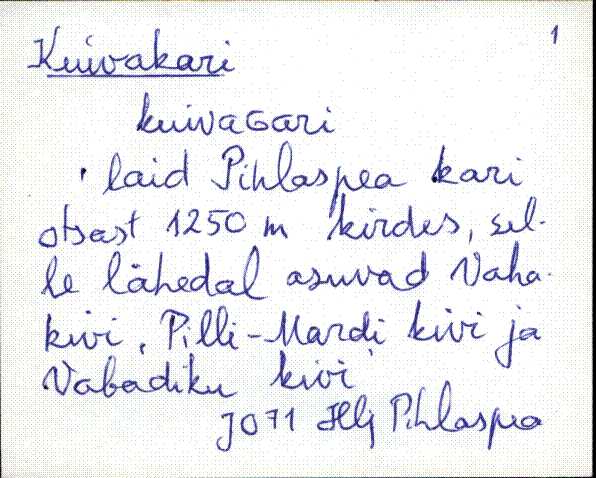 Kuivakari 1
kuivaGari
' laid Pihlaspea kari
otsast 1250 m kirdes, sel-
le lähedal asuvad Vaha-
kivi, Pilli-Mardi kivi ja
Vabadiku kivi'
JO71 Hlj Pihlaspea